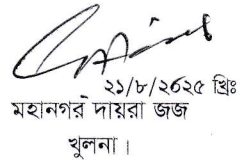 ২১/৮/২০২৫ খ্রিঃ
মহানগর দায়রা জজ
খুলনা।